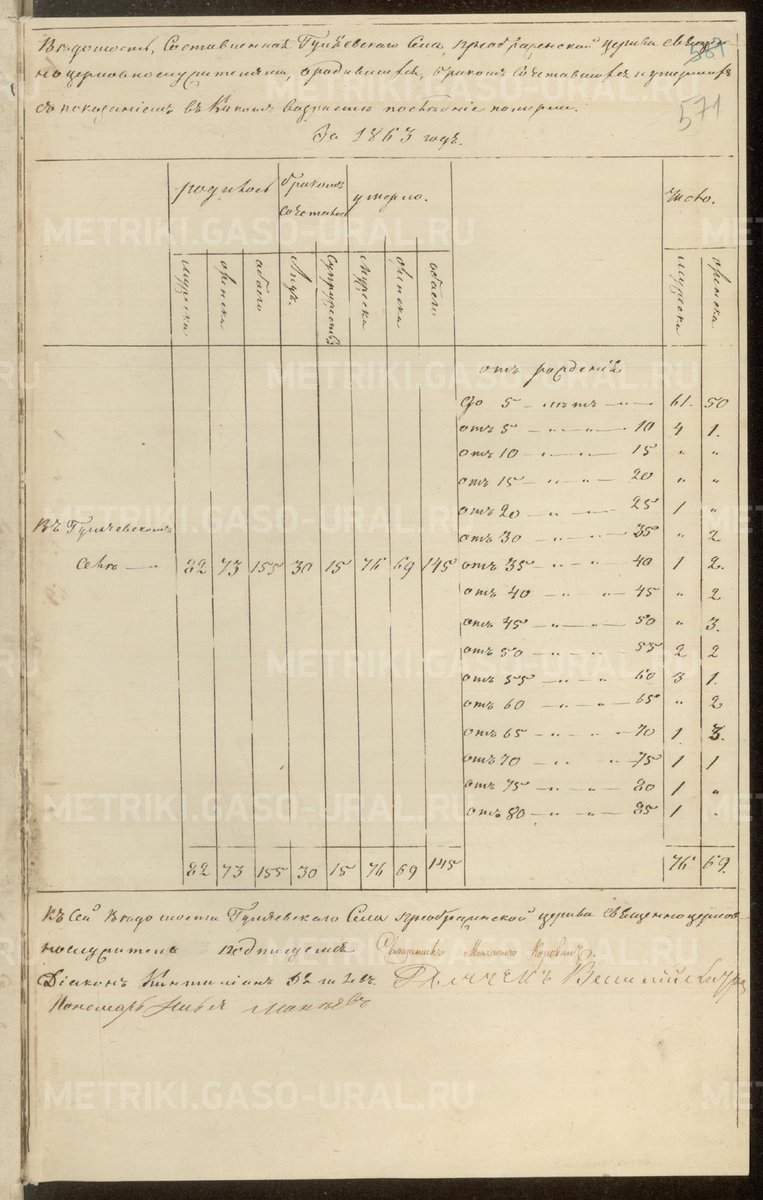 Ведомость, Составленная Гуляевскаго Села, преображенской церкви священ-
ноцерковнослужителями, о родившихся, бракомъ сочетавшихся и умершихъ
съ показаніемъ въ какомъ возрастѣ послѣдніе померли.
За 1863 годъ.
571
родилось
бракомъ сочеталось
умерло.
число.
мужеска
женска
обаего
Лицъ.
супружествъ
мужеска
женска
обаего
мужеска
женска
отъ рожденія
до 5 – лѣтъ – „ – 61. 50
отъ 5 – „ – „ – 10 4 1.
отъ 10 – „ – „ – 15 „ „
отъ 15 – „ – „ – 20 „ „
отъ 20 – „ – „ – 25 1 „
отъ 30 – „ – „ – 35 „ 2
Въ Гуляевскомъ
Селѣ — 82 73 155 30 15 76 69 145
отъ 35 – „ – „ – 40 1 2.
отъ 40 – „ – „ – 45 „ 2
отъ 45 – „ – „ – 50 „ 3.
отъ 50 – „ – „ – 55 2 2
отъ 55 – „ – „ – 60 3 1.
отъ 60 – „ – „ – 65 „ 2
отъ 65 – „ – „ – 70 1 3.
отъ 70 – „ – „ – 75 1 1
отъ 75 – „ – „ – 80 1 „
отъ 80 – „ – „ – 85 1 „
82 73 155 30 15 76 69 145 76 69.
Къ сей Ведомости Гуляевскаго Села преображенской церкви священноцерков-
нослужители подписуемся Священникъ
Діаконъ
Пономарь Илья
METRIKI.GASO-URAL.RU